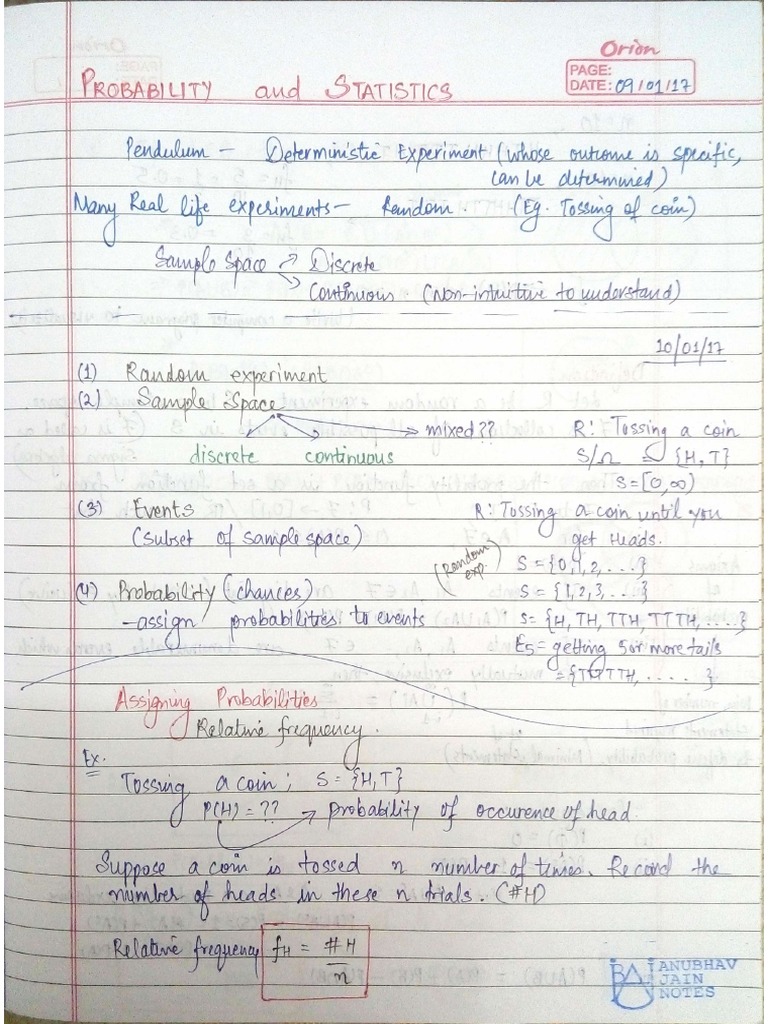 Orion
PAGE:
DATE: 09/01/17
PROBABILITY and STATISTICS
Pendulum – Deterministic Experiment (whose outcome is specific,
can be determined)
Many Real life experiments – Random. (Eg. Tossing of coin)
Sample Space → Discrete
→ Continuous (Non-intuitive to understand)
10/01/17
(1) Random experiment
(2) Sample Space
discrete continuous mixed??
R: Tossing a coin
S/Ω = {H, T}
S = [0, ∞)
(3) Events
(subset of sample space)
R: Tossing a coin until you
get Heads.
(Random exp.)
S = {0, 1, 2, ...}
S = {1, 2, 3, ...}
S = {H, TH, TTH, TTTH, ....}
(4) Probability (chances)
– assign probabilities to events
E5 = getting 5 or more tails
Assigning Probabilities
Relative frequency.
Ex.
Tossing a coin; S = {H, T}
P(H) = ?? → probability of occurence of head.
Suppose a coin is tossed n number of times. Record the
number of heads in these n trials. (#H)
Relative frequency fH = #H/n
BAJ ANUBHAV
JAIN
NOTES